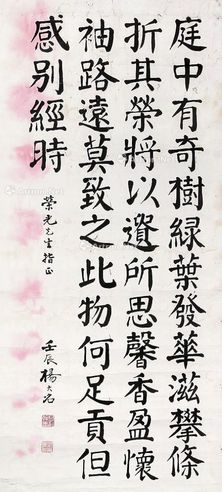 庭中有奇樹綠葉發華滋攀條
折其榮將以遺所思馨香盈懷
袖路遠莫致之此物何足貢但
感別經時
榮光先生指正
壬辰楊